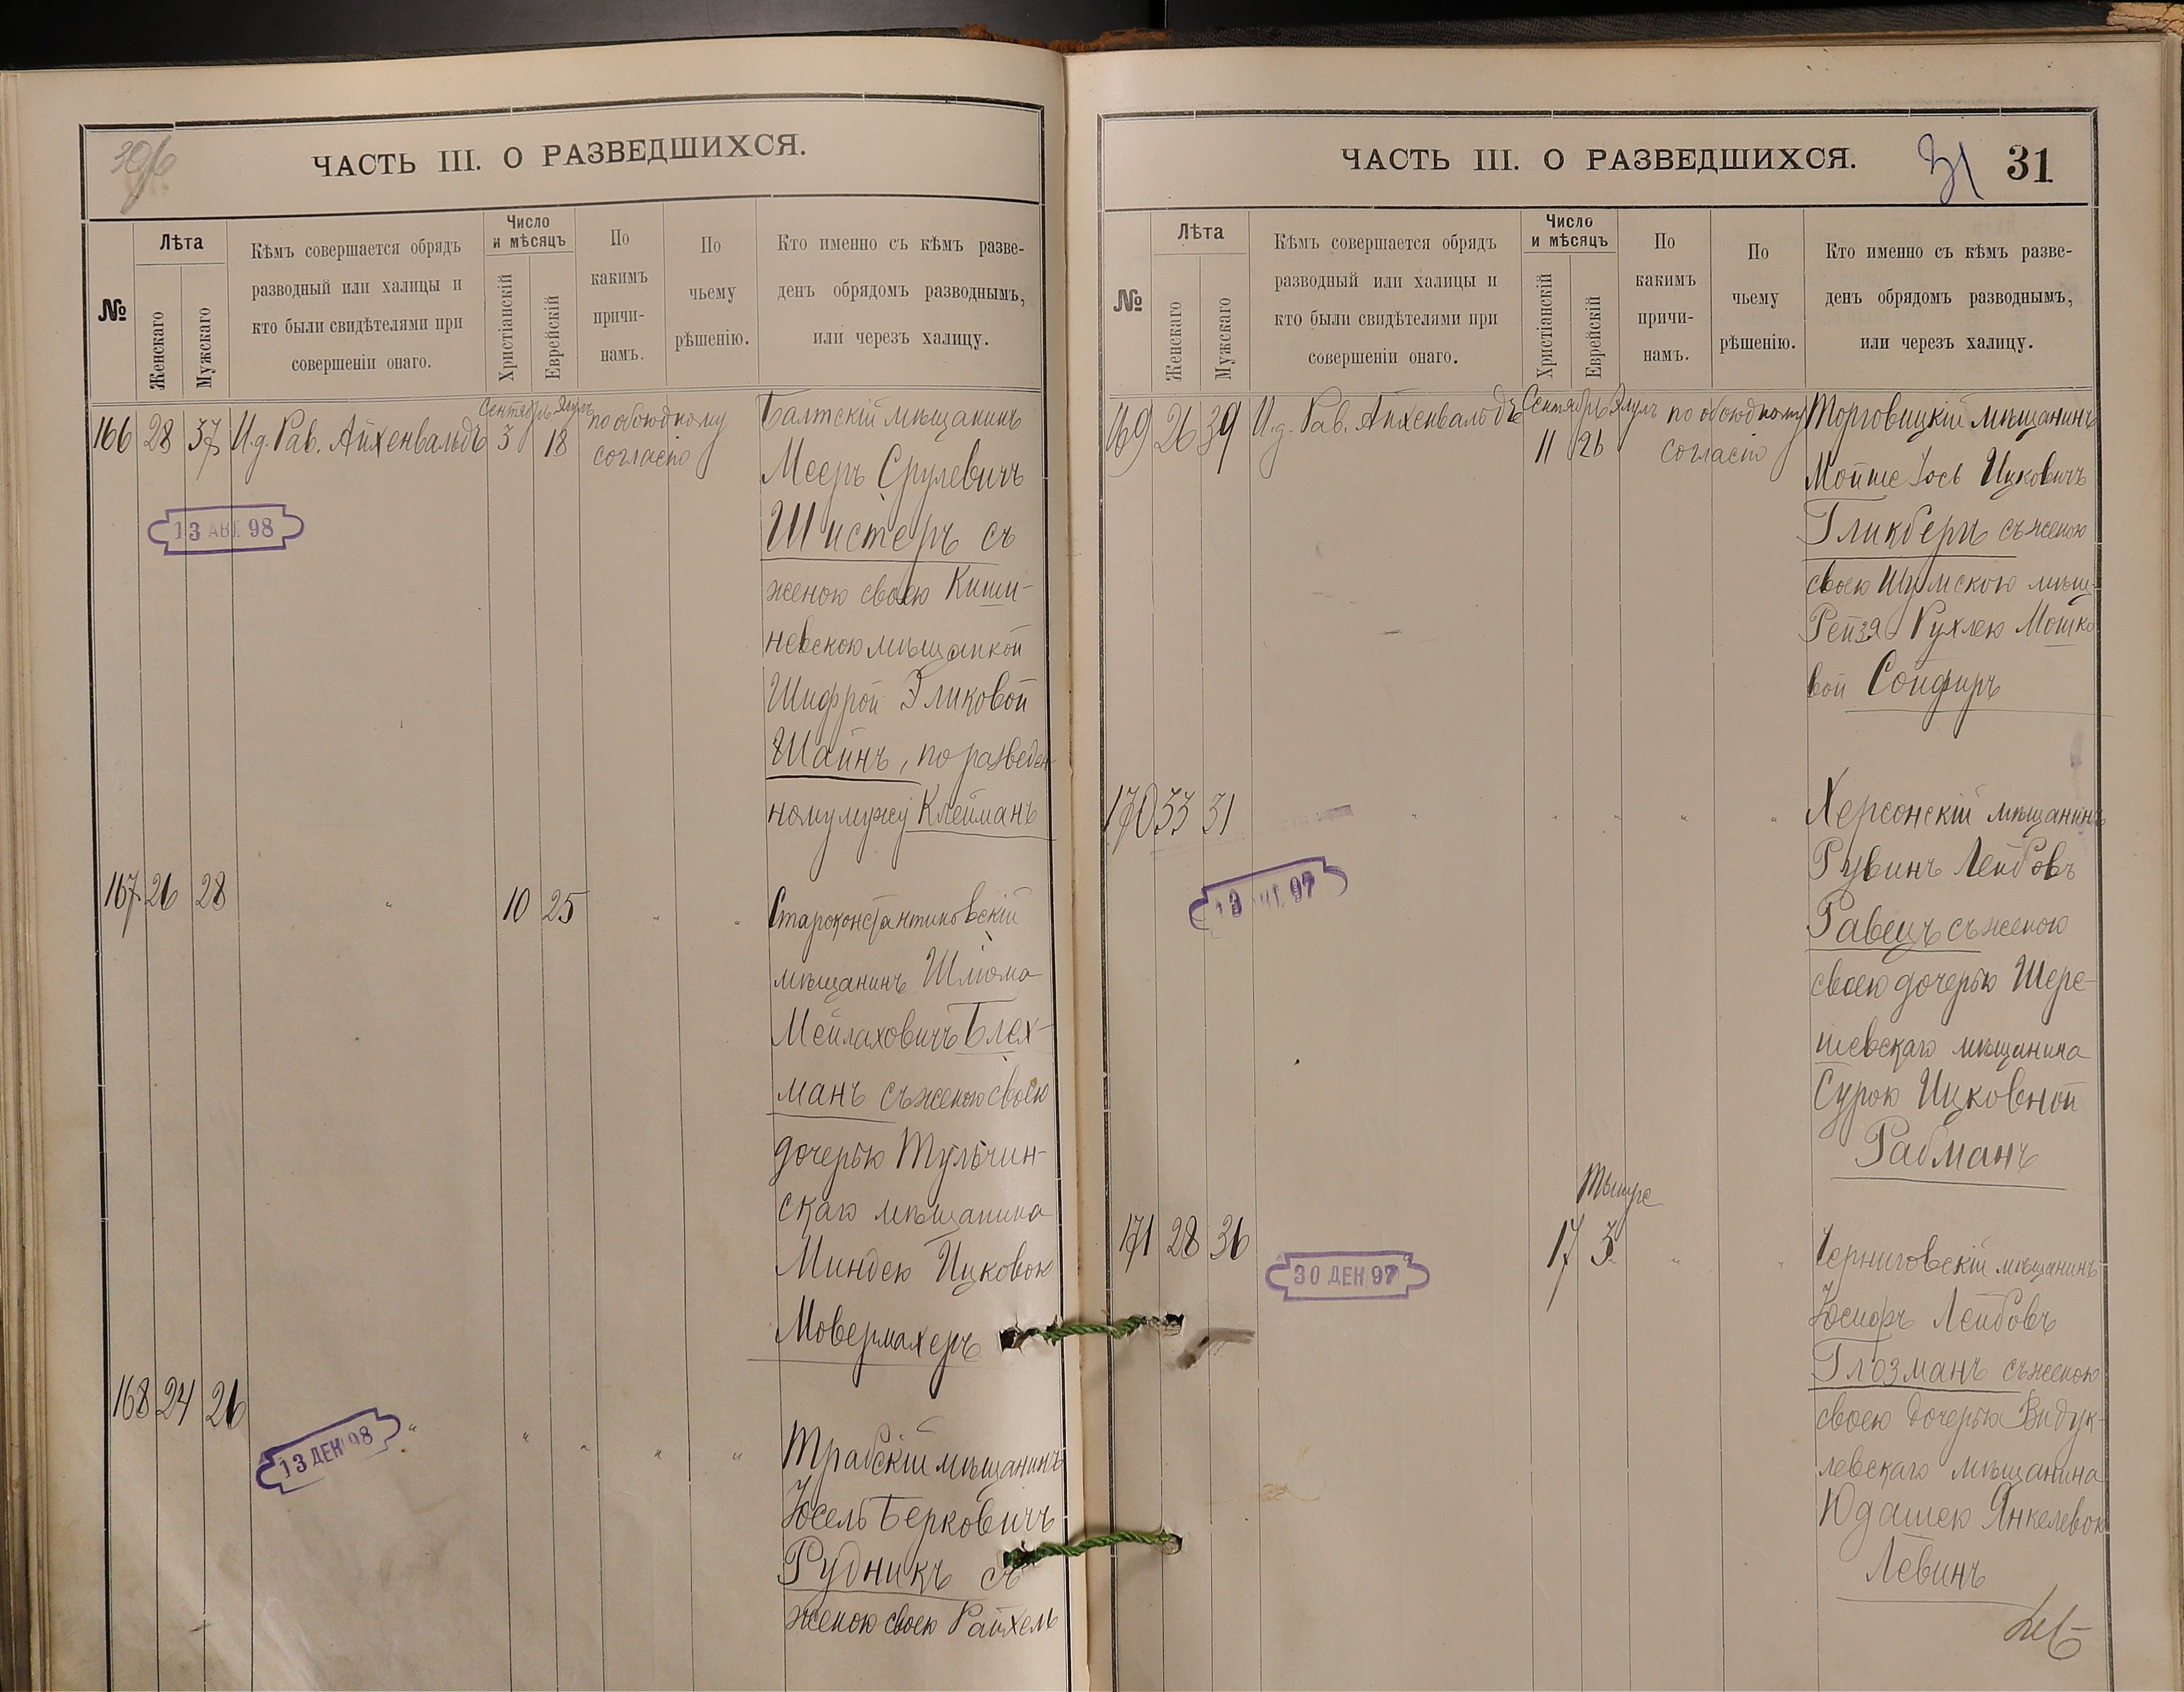 30/б
ЧАСТЬ III. О РАЗВЕДШИХСЯ.
№
Лѣта
Женскаго
Мужскаго
Кѣмъ совершается обрядъ
разводный или халицы и
кто были свидѣтелями при
совершеніи онаго.
Число
и мѣсяцъ
Христіанскій
Еврейскій
По
какимъ
причи-
намъ.
По
чьему
рѣшенію.
Кто именно съ кѣмъ разве-
денъ обрядомъ разводнымъ,
или черезъ халицу.
166 28 37 И.д. Рав. Айхенвальдъ
Сентябрь Элулъ
3 18
по обоюдному
согласію
Балтскій мѣщанинъ
Мееръ Срулевичъ
Шистеръ съ
женою своею Киши-
невскою мѣщанкой
Шифрой Эликовой
Шайнъ, по разведен-
ному мужу Клейманъ
13 АВГ. 98
167 26 28 " 10 25 " "
Староконстантиновскій
мѣщанинъ Шлюма
Мейлаховичъ Блех-
манъ съ женою своею
дочерью Тульчин-
скаго мѣщанина
Миндею Ицковою
Мовермахеръ
168 24 26 " " " " "
13 ДЕК 98
Трабскій мѣщанинъ
Юсель Берковичъ
Рудникъ съ
женою своею Райхель
ЧАСТЬ III. О РАЗВЕДШИХСЯ.
31 31
№
Лѣта
Женскаго
Мужскаго
Кѣмъ совершается обрядъ
разводный или халицы и
кто были свидѣтелями при
совершеніи онаго.
Число
и мѣсяцъ
Христіанскій
Еврейскій
По
какимъ
причи-
намъ.
По
чьему
рѣшенію.
Кто именно съ кѣмъ разве-
денъ обрядомъ разводнымъ,
или черезъ халицу.
169 26 39 И.д. Рав. Айхенвальдъ
Сентябрь Элулъ
11 26
по обоюдному
согласію
Торговицкій мѣщанинъ
Мойше Іось Ицковичъ
Гликбергъ съ женою
своею Шумскою мѣщ.
Рейзя Рухлею Мошко
вой Сойфиръ
170 33 31 " " " " "
97
Херсонскій мѣщанинъ
Рувинъ Лейбовъ
Равецъ съ женою
своею дочерью Шере-
шевскаго мѣщанина
Сурою Ицковной
Рабманъ
171 28 36
Тышре
17 3 " "
30 ДЕК 97
Черниговскій мѣщанинъ
Іосифъ Лейбовъ
Глозманъ съ женою
своею дочерью Видук-
левскаго мѣщанина
Юдашею Янкелевою
Левинъ